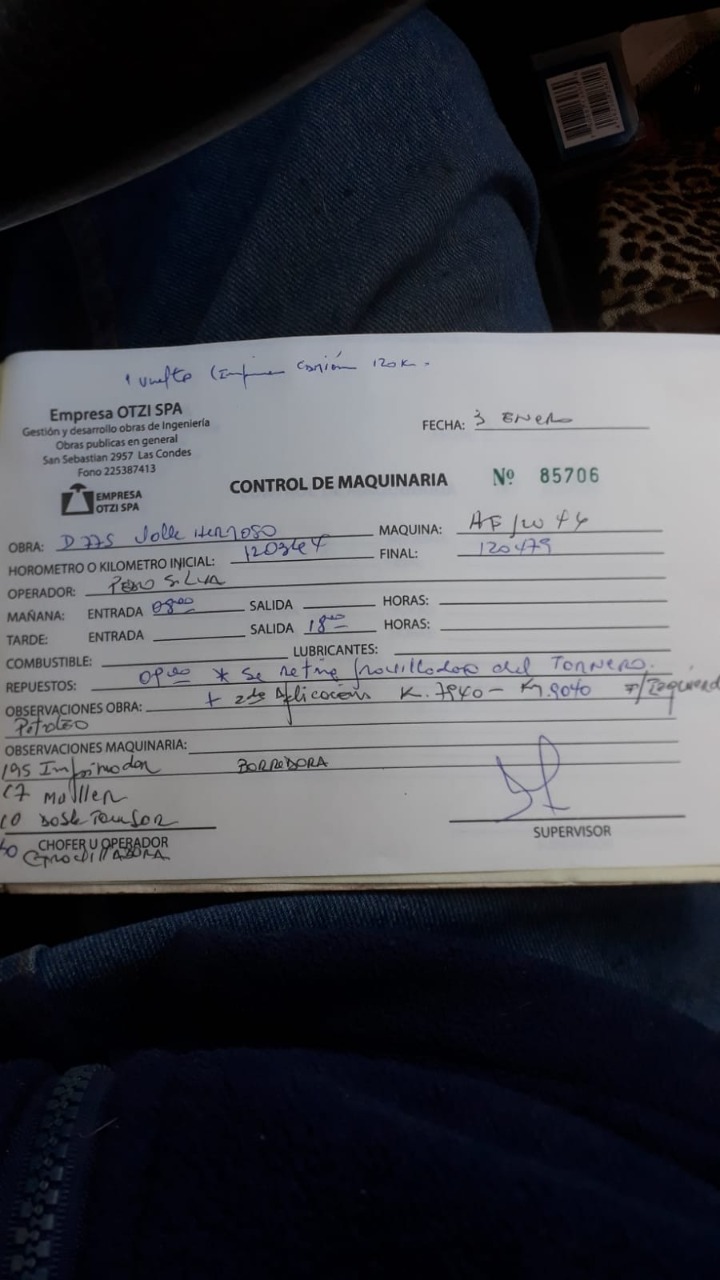 1 vuelta camión 120 K.
Empresa OTZI SPA
Gestión y desarrollo obras de Ingeniería
Obras publicas en general
San Sebastian 2957 Las Condes
Fono 225387413
EMPRESA
OTZI SPA
FECHA: 3 ENERO
CONTROL DE MAQUINARIA Nº 85706
OBRA: D 775 MAQUINA:
HOROMETRO O KILOMETRO INICIAL: 120364 FINAL: 120479
OPERADOR: PEDRO SILVA
MAÑANA: ENTRADA 08:00 SALIDA HORAS:
TARDE: ENTRADA SALIDA 18:00 HORAS:
COMBUSTIBLE: LUBRICANTES:
REPUESTOS: * Se retira del TORNERO.
OBSERVACIONES OBRA: + 2da Aplicación K.7940 - K.9040
Petroleo
OBSERVACIONES MAQUINARIA:
195 Imprimador BORREDORA
Muller
CHOFER U OPERADOR SUPERVISOR